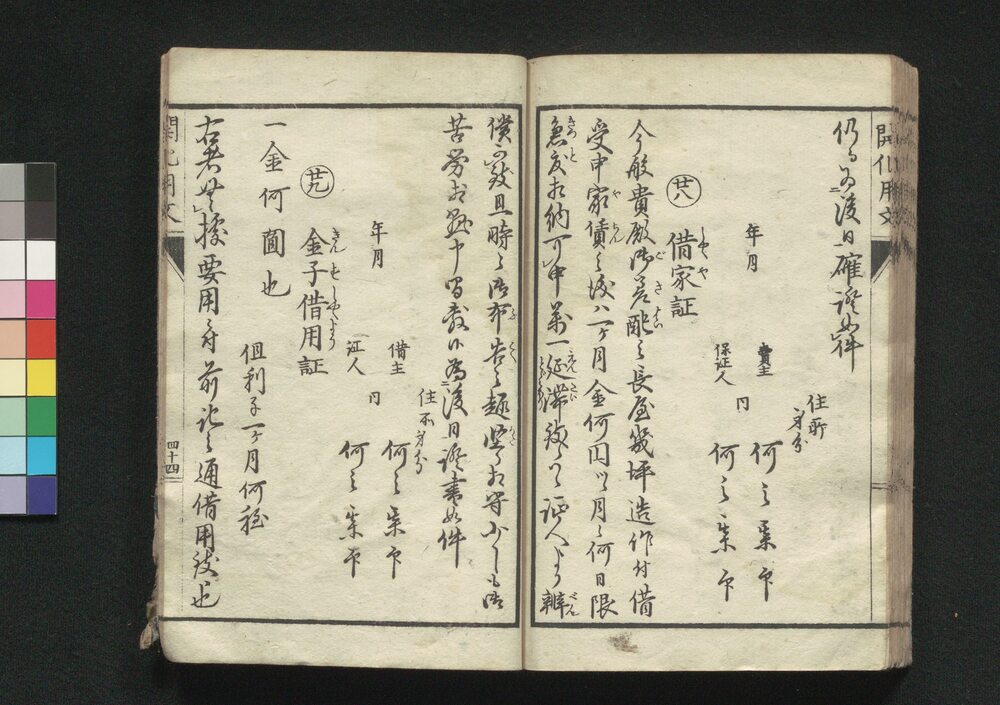 開化用文
仍而為後日確証如件
住所
身分
年月 賣主 何之某印
保証人 同 何之某印
廿八 借家証
今般貴殿御差配之長屋幾坪造作付借
受申家賃之儀ハ一ヶ月金何円ツヽ月々何日限
急度相納可申萬一延滞致候ハヽ証人より辨
償可致且時々御布告之趣堅く相守少しも御
苦労相懸申間敷候為後日証書如件
住所身分
年月 借主 何之某印
証人 同 何之某印
廿九 金子借用証
一金何圓也
但利子一ヶ月何程
右者無據要用ニ付前記之通借用致也
開化用文
四十四